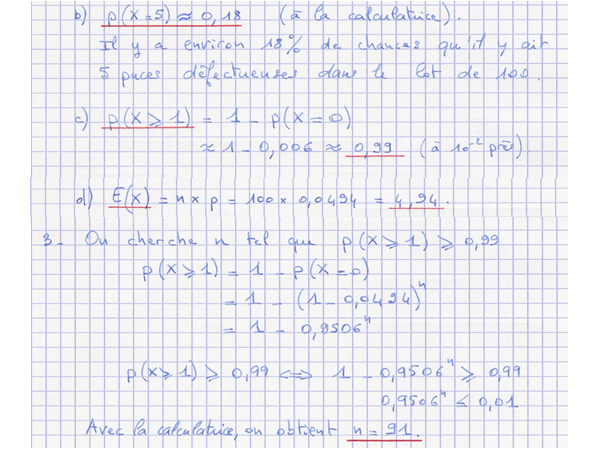 b) p(X=5) ≈ 0,18 (à la calculatrice).
Il y a environ 18% de chances qu'il y ait
5 puces défectueuses dans le lot de 100.
c) p(X⩾1) = 1 - p(X=0)
≈ 1 - 0,006 ≈ 0,99 (à 10⁻² près).
d) E(X) = n × p = 100 × 0,0494 = 4,94.
3- On cherche n tel que p(X⩾1) ⩾ 0,99
p(X⩾1) = 1 - p(X=0)
= 1 - (1-0,0494)ⁿ
= 1 - 0,9506ⁿ
p(X⩾1) ⩾ 0,99 ⟺ 1 - 0,9506ⁿ ⩾ 0,99
0,9506ⁿ ⩽ 0,01
Avec la calculatrice, on obtient n = 91.